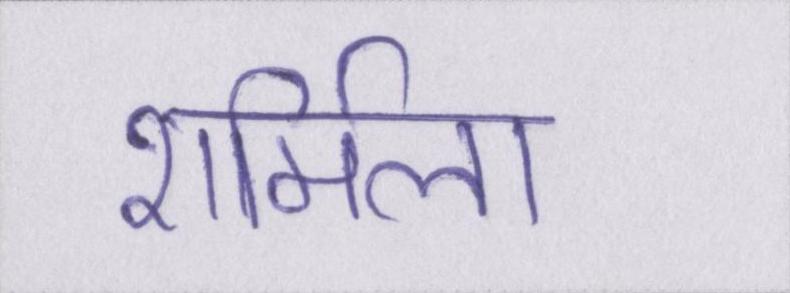 शर्मिला